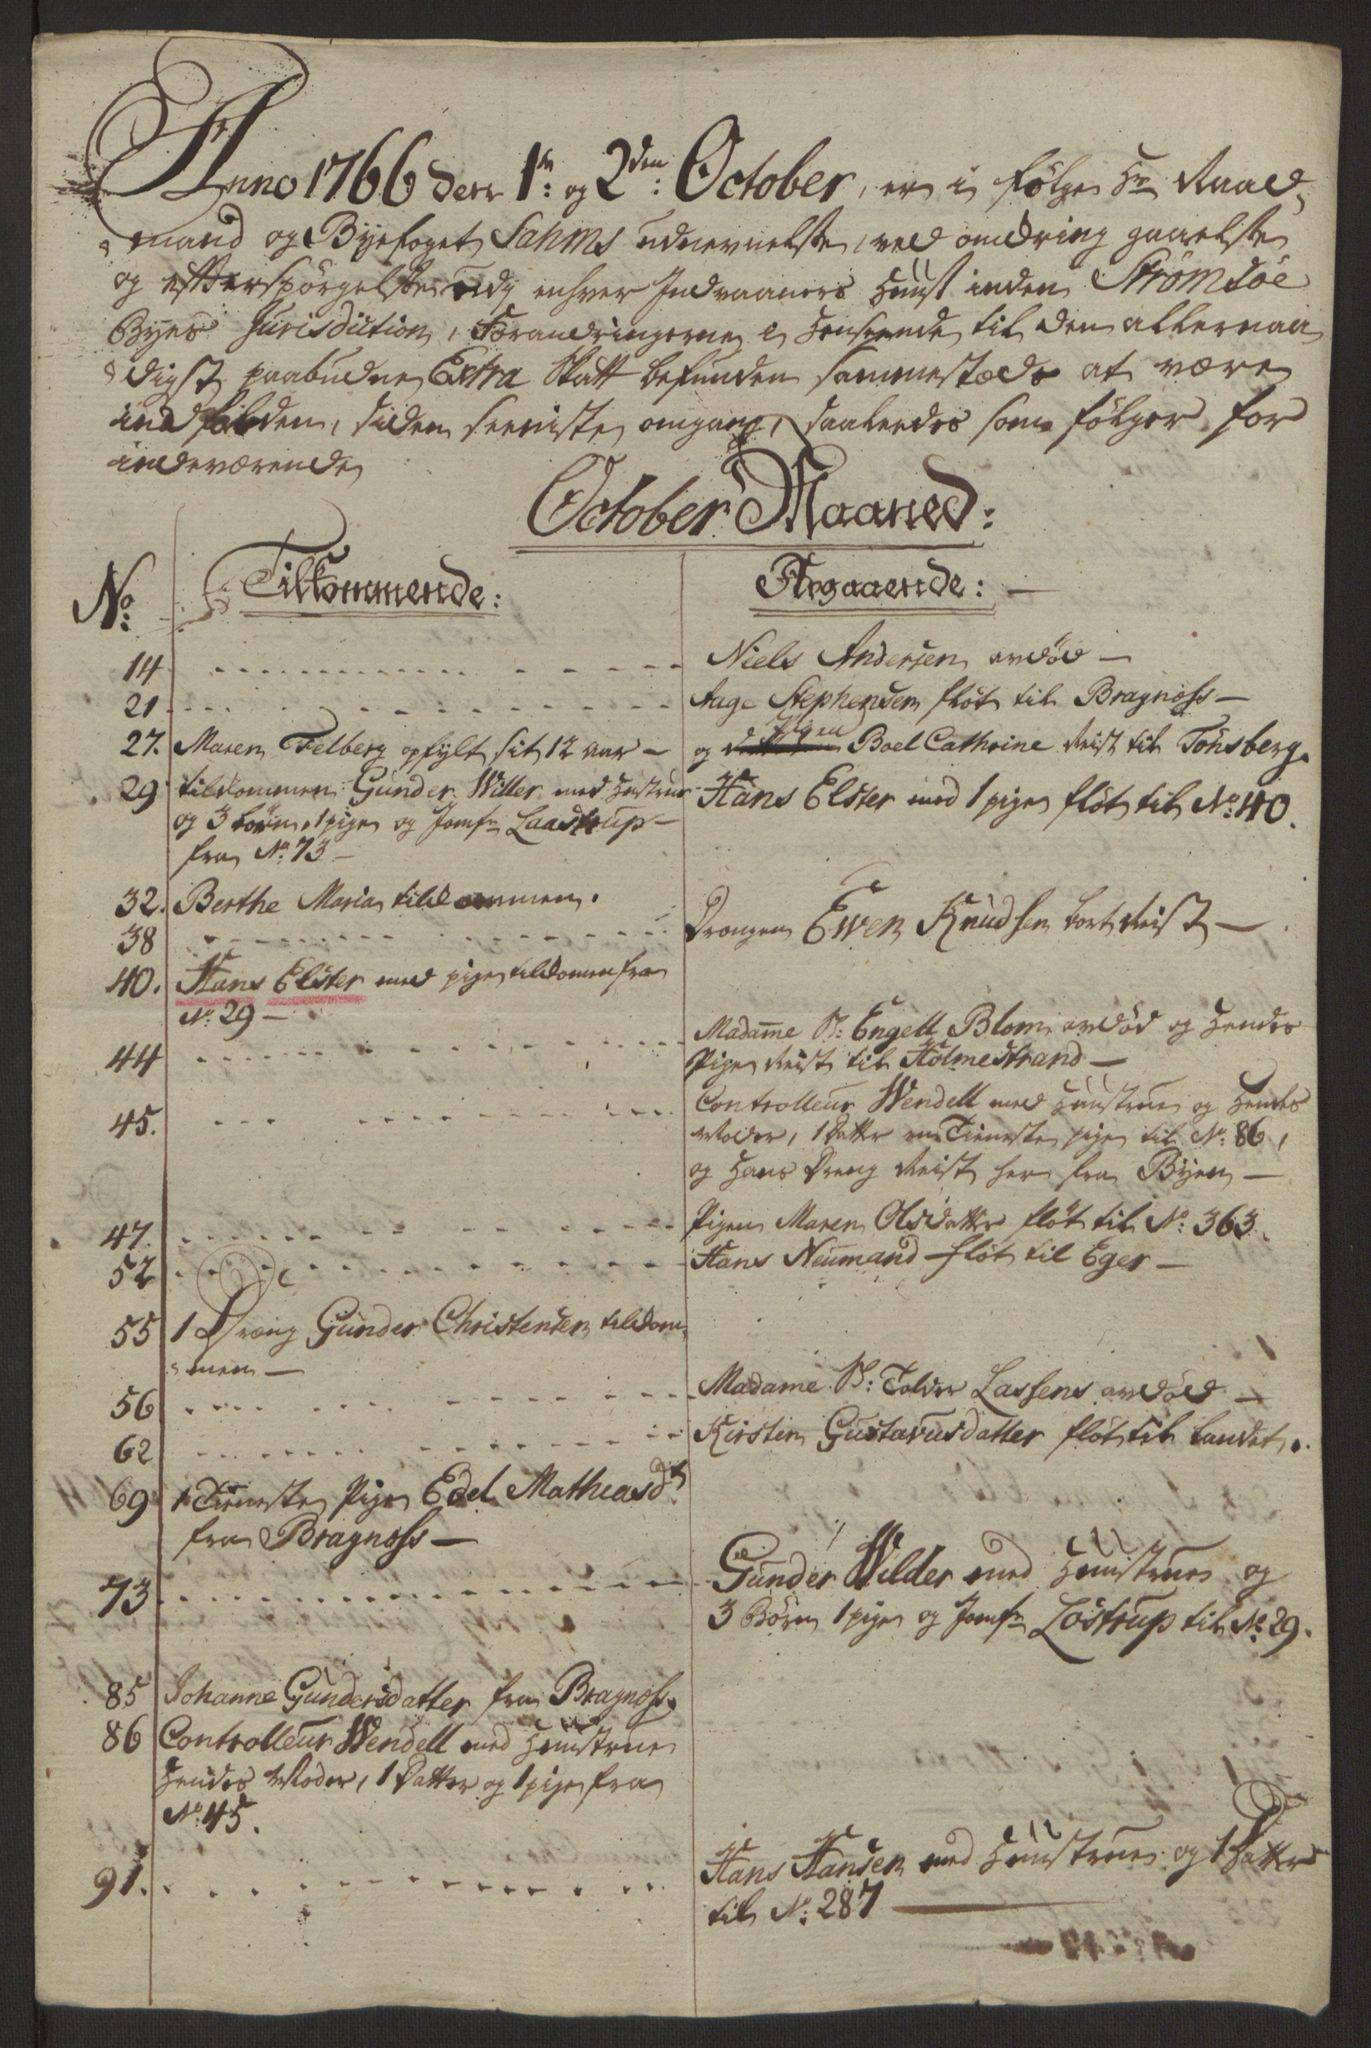 Anno 1766 den 1te og 2den October, er i følge Hr Raad-
mand og Byefoget Sahms udnevnelse, ved omdring gaaelse
og efterspørgelse udj enhver Indvaaners Huus inden Strømsöe
Byes Jurisdiction, Forandringerne i Henseende til den allernaa-
digst paabudne Extra Skatt befunden sammestæds at være
indfalden, siden seeniste omgang, saaledes som følger for
indeværende
October Maaned:
No: Tilkommende: Afgaaende:
14 Niels Andersen avdød
21 Aage Stephensen fløt til Bragness
27. Maren Felberg opfylt sit 12 aar og Pigen Boel Cathrine Reist til Tönsberg.
29 tilkommen Gunder Willer med Hustrue Hans Elster med 1 pige fløt til No: 40.
og 3 børn, 1 pige og Jomfr Laastrup
fra No: 73
32. Berthe Maria tilkommen.
38 Drengen Ewen Knudsen bort Reist
40. Hans Elster med pige tilkommen fra
No: 29
44 Madame Sl: Engell Blom avdød og Hendes
Pige Reist til Holmestrand
45. Controlleur Wendell med Huustrue og Hendes
Moder, 1 Datter en Tieneste pige til No: 86,
og Hans Dreng Reist her fra Byen
47. Pigen Maren Olsdatter fløt til No: 363.
52 Hans Neumand fløt til Eger
55 1 Dreng Gunder Christensen tilkom-
men
56 Madame Sl: Tolder Lassens avdød
62 Kirstin Gustavusdatter fløt til Landet.
69 1 Tieneste Pige Edel Matheasdtr
fra Bragness
73 Gunder Wilder med Huustrue og
3 Börn 1 pige og Jomfr Lostrup til No: 29.
85 Johanne Gundersdatter fra Bragness.
86 Controlleur Wendell med Huustrue
Hendes Moder, 1 Datter og 1 pige fra
No: 45.
91. Hans Hansen med Huustrue og 1 Datter
til No: 287